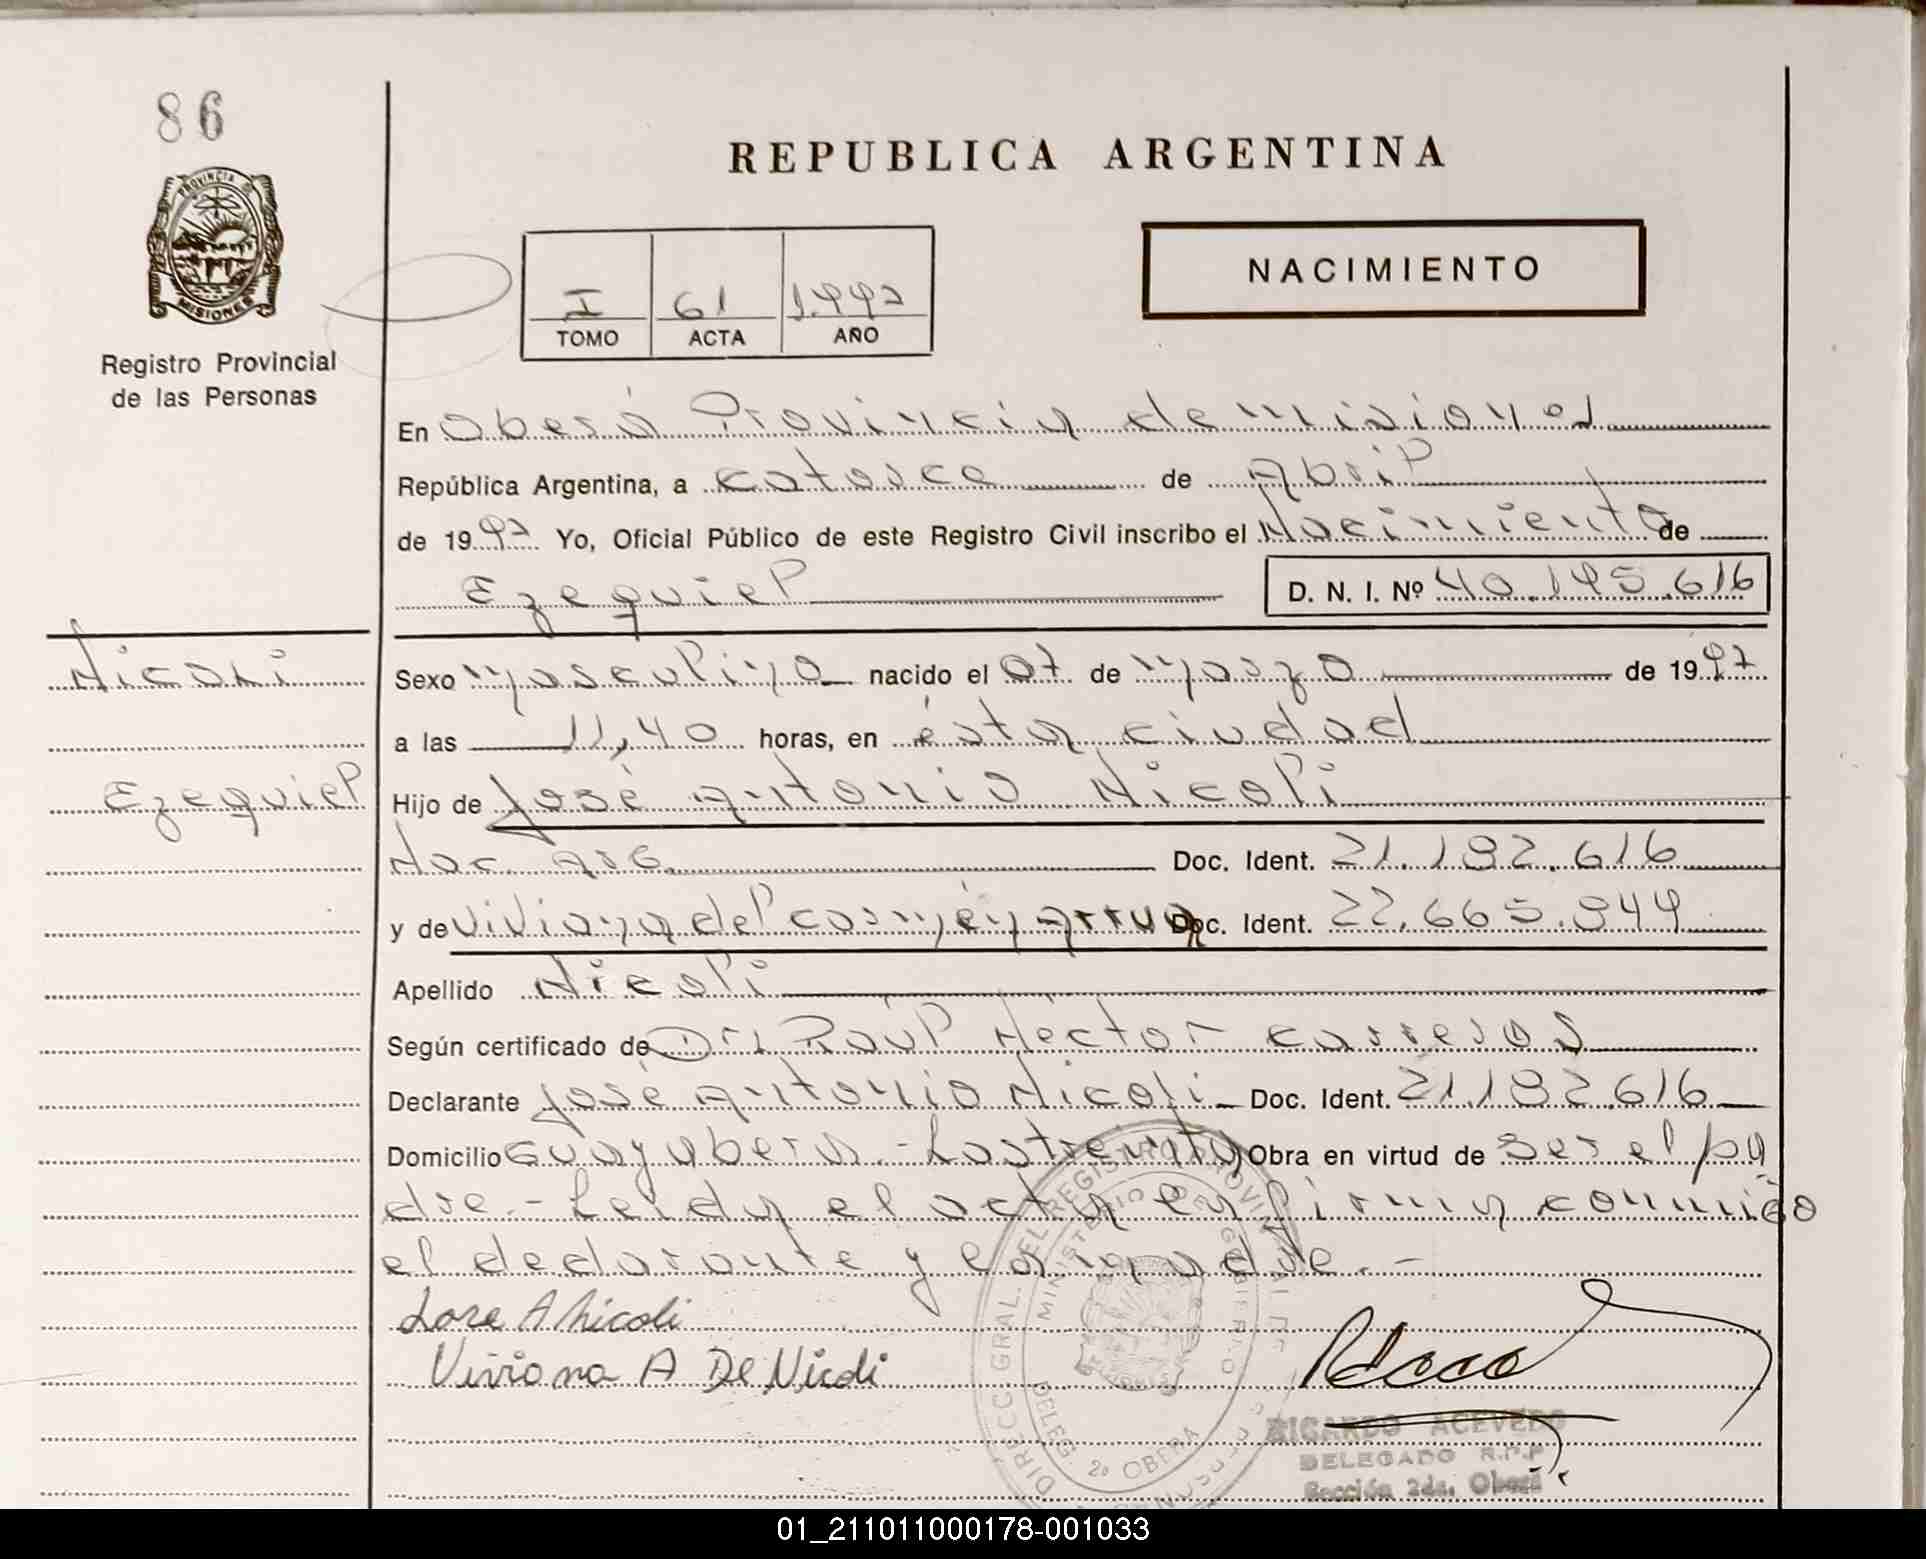 86
PROVINCIA DE
MISIONES
Registro Provincial
de las Personas
REPUBLICA ARGENTINA
I 61 1.997
TOMO ACTA AÑO
NACIMIENTO
En Oberá Provincia de misiones
República Argentina, a catorce de Abril
de 1997 Yo, Oficial Público de este Registro Civil inscribo el Nacimiento de
Ezequiel D. N. I. Nº 40.195.616
Nicoli
Sexo masculino nacido el 07 de marzo de 1997
a las 11,40 horas, en ésta ciudad
Ezequiel
Hijo de José Antonio Nicoli
Nac. Arg. Doc. Ident. 21.182.616
y de Viviana del Carmén Arrua Doc. Ident. 22.665.944
Apellido Nicoli
Según certificado de Dr. Raúl Héctor Carreras
Declarante José Antonio Nicoli Doc. Ident. 21.182.616
Domicilio Guayabera.- Lastenia Obra en virtud de ser el pa
dre.- Leida el acta la firma conmigo
el declarante y la madre.-
Jose A Nicoli
Viviana A De Nicoli
DIRECC GRAL. DEL REGISTRO PROVINCIAL
MINISTERIO DE GOBIERNO
DELEG. 2º OBERA
RICARDO ACEVEDO
DELEGADO R.P.P
Sección 2da. Oberá
01_211011000178-001033